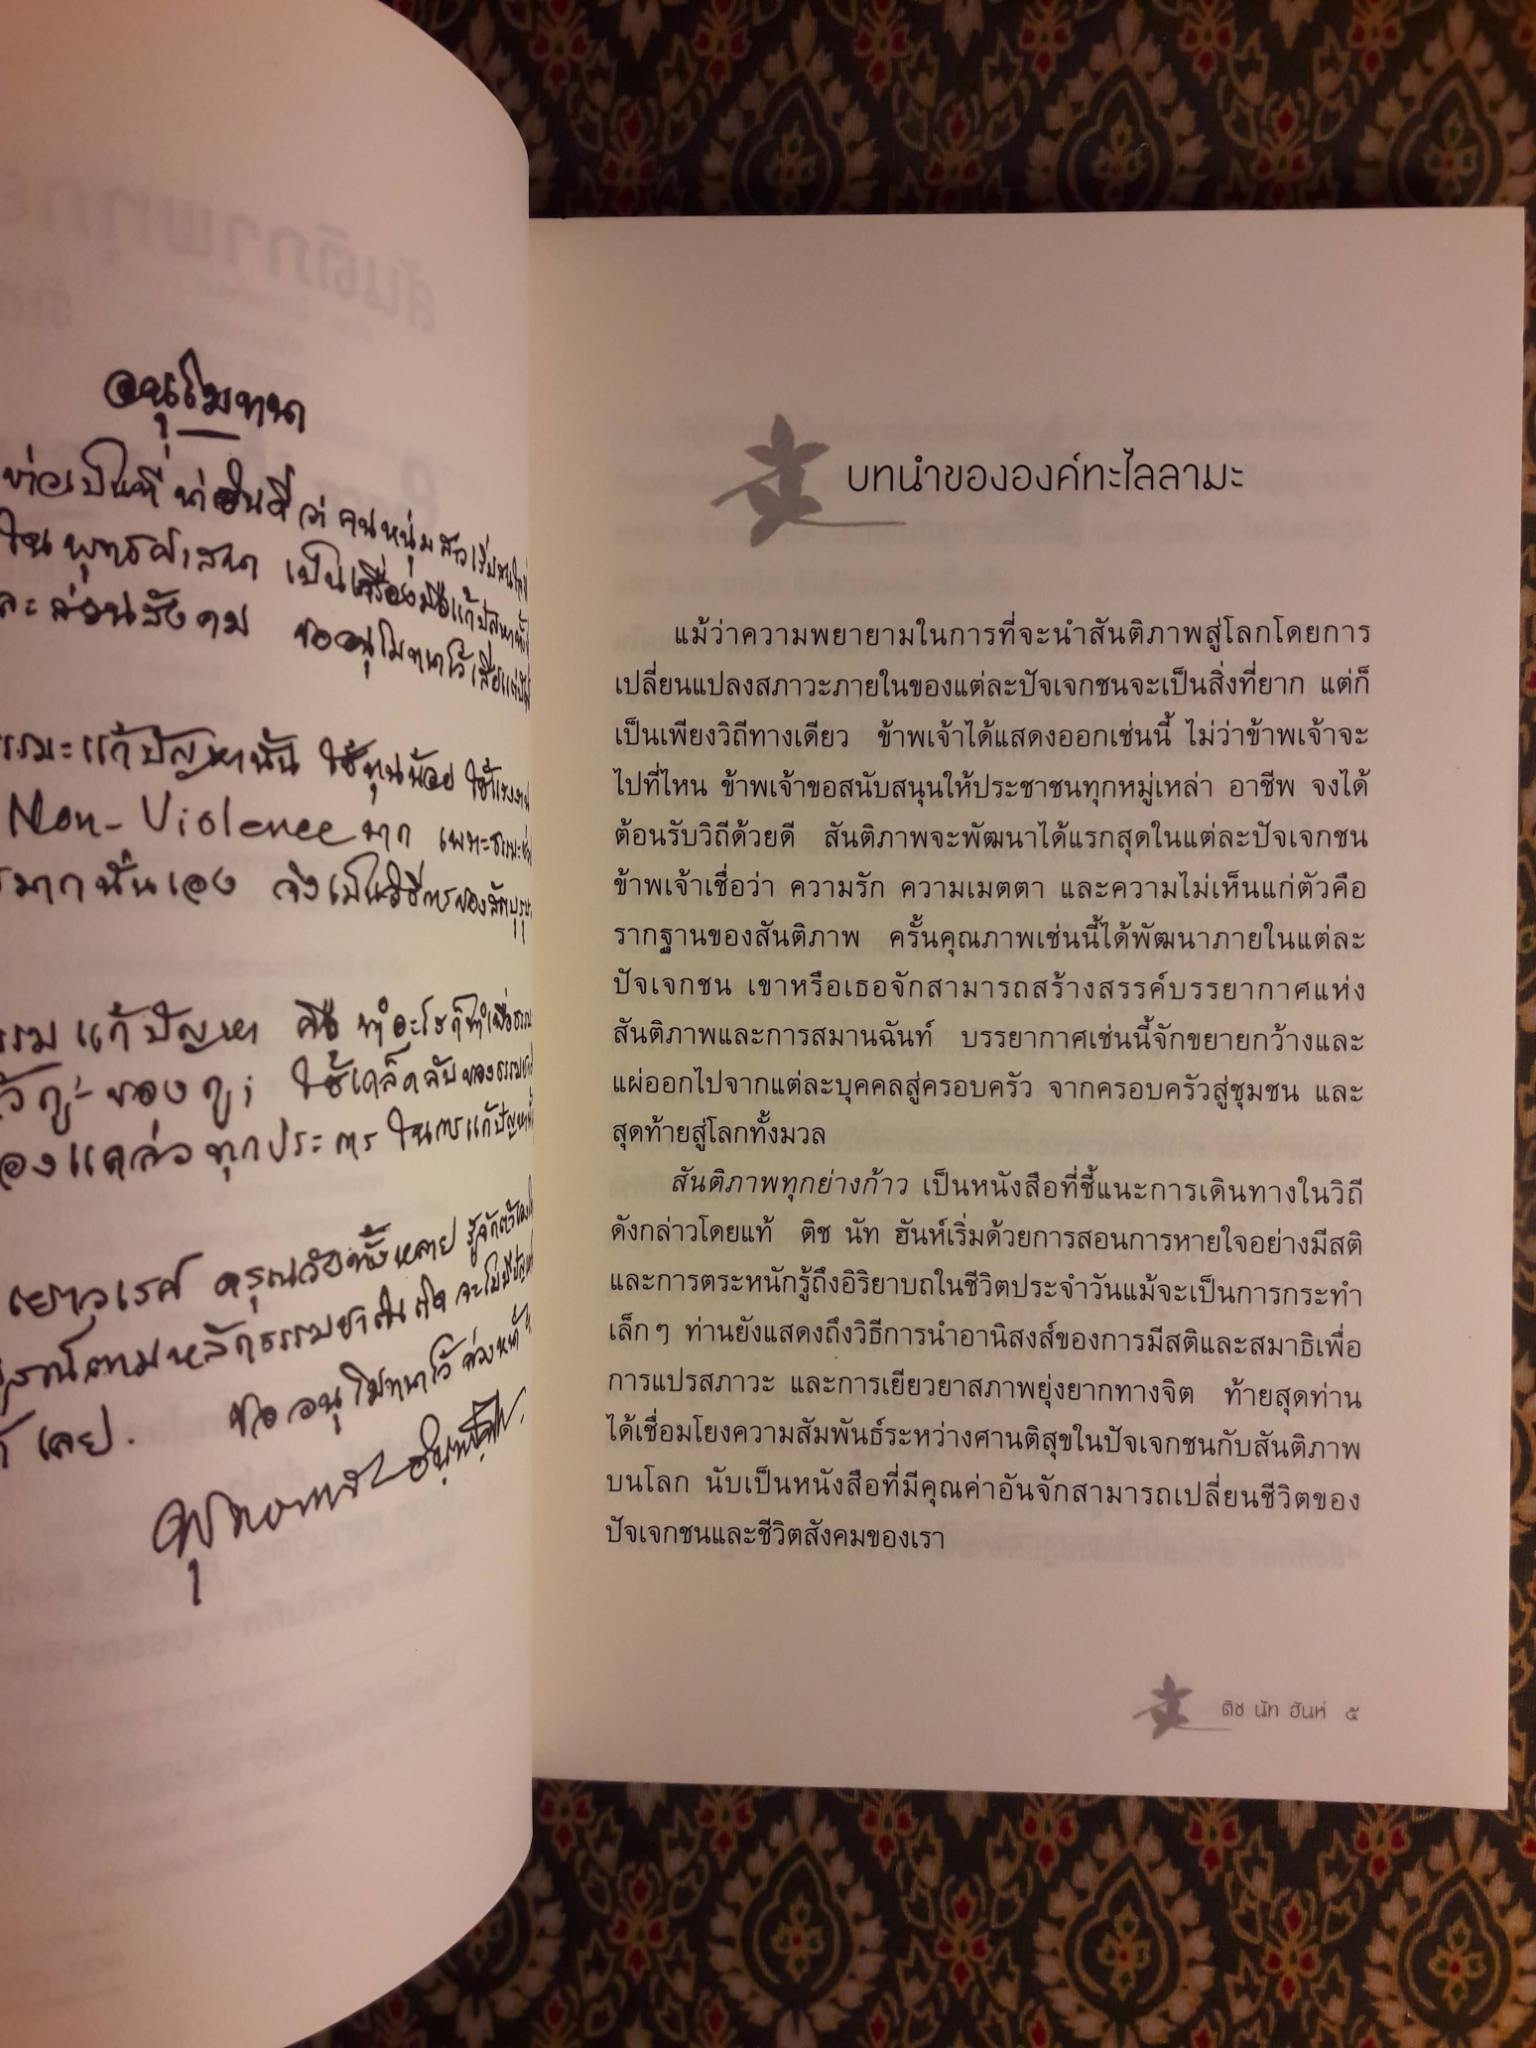 อนุโมทนา
ข่าวเป็นที่น่ายินดีว่า คนหนุ่มสาวเริ่มสนใจ
ในพุทธศาสนา เป็นเครื่องมือแก้ปัญหาทั้ง
ละส่วนสังคม ขออนุโมทนาไว้
รรมะแก้ปัญหานั้น ใช้ทุนน้อย ใช้แรงงาน
Non-Violence มาก เพราะธรรมะ
มากนั่นเอง จึงเป็นวิธีการของสัตบุรุษ
รรม แก้ปัญหา คือ ทำอะไรก็ทำเพื่อธรรม
ตัวกู-ของกู; ใช้เคล็ดลับของธรรม
องแคล่วทุกประการ ในการแก้ปัญหา
เยาวเรศ ดรุณวัยทั้งหลาย รู้จัก
ตามหลักธรรม จะไม่มีปัญหา
เลย. ขออนุโมทนาไว้ล่วงหน้า
พุทธทาส อินทปัญโญ.
บทนำขององค์ทะไลลามะ
แม้ว่าความพยายามในการที่จะนำสันติภาพสู่โลกโดยการ
เปลี่ยนแปลงสภาวะภายในของแต่ละปัจเจกชนจะเป็นสิ่งที่ยาก แต่ก็
เป็นเพียงวิถีทางเดียว ข้าพเจ้าได้แสดงออกเช่นนี้ ไม่ว่าข้าพเจ้าจะ
ไปที่ไหน ข้าพเจ้าขอสนับสนุนให้ประชาชนทุกหมู่เหล่า อาชีพ จงได้
ต้อนรับวิถีด้วยดี สันติภาพจะพัฒนาได้แรกสุดในแต่ละปัจเจกชน
ข้าพเจ้าเชื่อว่า ความรัก ความเมตตา และความไม่เห็นแก่ตัวคือ
รากฐานของสันติภาพ ครั้นคุณภาพเช่นนี้ได้พัฒนาภายในแต่ละ
ปัจเจกชน เขาหรือเธอจักสามารถสร้างสรรค์บรรยากาศแห่ง
สันติภาพและการสมานฉันท์ บรรยากาศเช่นนี้จักขยายกว้างและ
แผ่ออกไปจากแต่ละบุคคลสู่ครอบครัว จากครอบครัวสู่ชุมชน และ
สุดท้ายสู่โลกทั้งมวล
สันติภาพทุกย่างก้าว เป็นหนังสือที่ชี้แนะการเดินทางในวิถี
ดังกล่าวโดยแท้ ติช นัท ฮันห์เริ่มด้วยการสอนการหายใจอย่างมีสติ
และการตระหนักรู้ถึงอิริยาบถในชีวิตประจำวันแม้จะเป็นการกระทำ
เล็กๆ ท่านยังแสดงถึงวิธีการนำอานิสงส์ของการมีสติและสมาธิเพื่อ
การแปรสภาวะ และการเยียวยาสภาพยุ่งยากทางจิต ท้ายสุดท่าน
ได้เชื่อมโยงความสัมพันธ์ระหว่างศานติสุขในปัจเจกชนกับสันติภาพ
บนโลก นับเป็นหนังสือที่มีคุณค่าอันจักสามารถเปลี่ยนชีวิตของ
ปัจเจกชนและชีวิตสังคมของเรา
ติช นัท ฮันห์ ๕